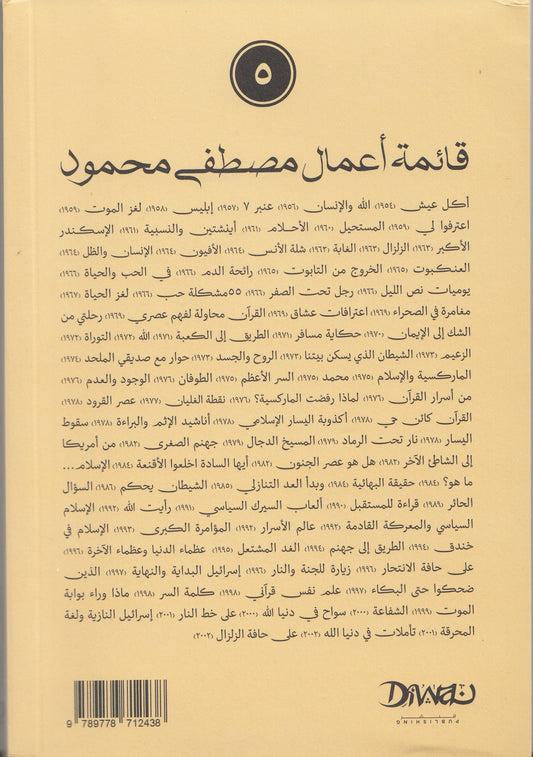 ٥
قائمة أعمال مصطفى محمود
أكل عيش (١٩٥٤) الله والإنسان (١٩٥٦) عنبر ٧ (١٩٥٧) إبليس (١٩٥٨) لغز الموت (١٩٥٩)
اعترفوا لي (١٩٥٩) المستحيل (١٩٦٠) الأحلام (١٩٦١) أينشتين والنسبية (١٩٦١) الإسكندر
الأكبر (١٩٦٣) الزلزال (١٩٦٣) الغابة (١٩٦٣) شلة الأنس (١٩٦٤) الأفيون (١٩٦٤) الإنسان والظل (١٩٦٤)
العنكبوت (١٩٦٥) الخروج من التابوت (١٩٦٥) رائحة الدم (١٩٦٦) في الحب والحياة (١٩٦٦)
يوميات نص الليل (١٩٦٦) رجل تحت الصفر (١٩٦٦) ٥٥ مشكلة حب (١٩٦٦) لغز الحياة (١٩٦٧)
مغامرة في الصحراء (١٩٦٩) اعترافات عشاق (١٩٦٩) القرآن محاولة لفهم عصري (١٩٦٩) رحلتي من
الشك إلى الإيمان (١٩٧٠) حكاية مسافر (١٩٧١) الطريق إلى الكعبة (١٩٧١) الله (١٩٧٢) التوراة (١٩٧٢)
الزعيم (١٩٧٣) الشيطان الذي يسكن بيتنا (١٩٧٣) الروح والجسد (١٩٧٣) حوار مع صديقي الملحد (١٩٧٤)
الماركسية والإسلام (١٩٧٥) محمد (١٩٧٥) السر الأعظم (١٩٧٥) الطوفان (١٩٧٦) الوجود والعدم (١٩٧٦)
من أسرار القرآن (١٩٧٦) لماذا رفضت الماركسية؟ (١٩٧٦) نقطة الغليان (١٩٧٧) عصر القرود (١٩٧٨)
القرآن كائن حي (١٩٧٨) أكذوبة اليسار الإسلامي (١٩٧٨) أناشيد الإثم والبراءة (١٩٧٨) سقوط
اليسار (١٩٧٨) نار تحت الرماد (١٩٧٩) المسيخ الدجال (١٩٧٩) جهنم الصغرى (١٩٨٢) من أمريكا
إلى الشاطئ الآخر (١٩٨٢) هل هو عصر الجنون (١٩٨٢) أيها السادة اخلعوا الأقنعة (١٩٨٤) الإسلام...
ما هو؟ (١٩٨٤) حقيقة البهائية (١٩٨٤) وبدأ العد التنازلي (١٩٨٥) الشيطان يحكم (١٩٨٦) السؤال
الحائر (١٩٨٩) قراءة للمستقبل (١٩٩٠) ألعاب السيرك السياسي (١٩٩١) رأيت الله (١٩٩٢) الإسلام
السياسي والمعركة القادمة (١٩٩٢) عالم الأسرار (١٩٩٢) المؤامرة الكبرى (١٩٩٣) الإسلام في
خندق (١٩٩٤) الطريق إلى جهنم (١٩٩٤) الغد المشتعل (١٩٩٥) عظماء الدنيا وعظماء الآخرة (١٩٩٦)
على حافة الانتحار (١٩٩٦) زيارة للجنة والنار (١٩٩٦) إسرائيل البداية والنهاية (١٩٩٧) الذين
ضحكوا حتى البكاء (١٩٩٧) علم نفس قرآني (١٩٩٨) كلمة السر (١٩٩٨) ماذا وراء بوابة
الموت (١٩٩٩) الشفاعة (٢٠٠٠) سواح في دنيا الله (٢٠٠٠) على خط النار (٢٠٠١) إسرائيل النازية ولغة
المحرقة (٢٠٠١) تأملات في دنيا الله (٢٠٠٢) على حافة الزلزال (٢٠٠٢)
DIWAN
نشر
PUBLISHING
9 789778 712438